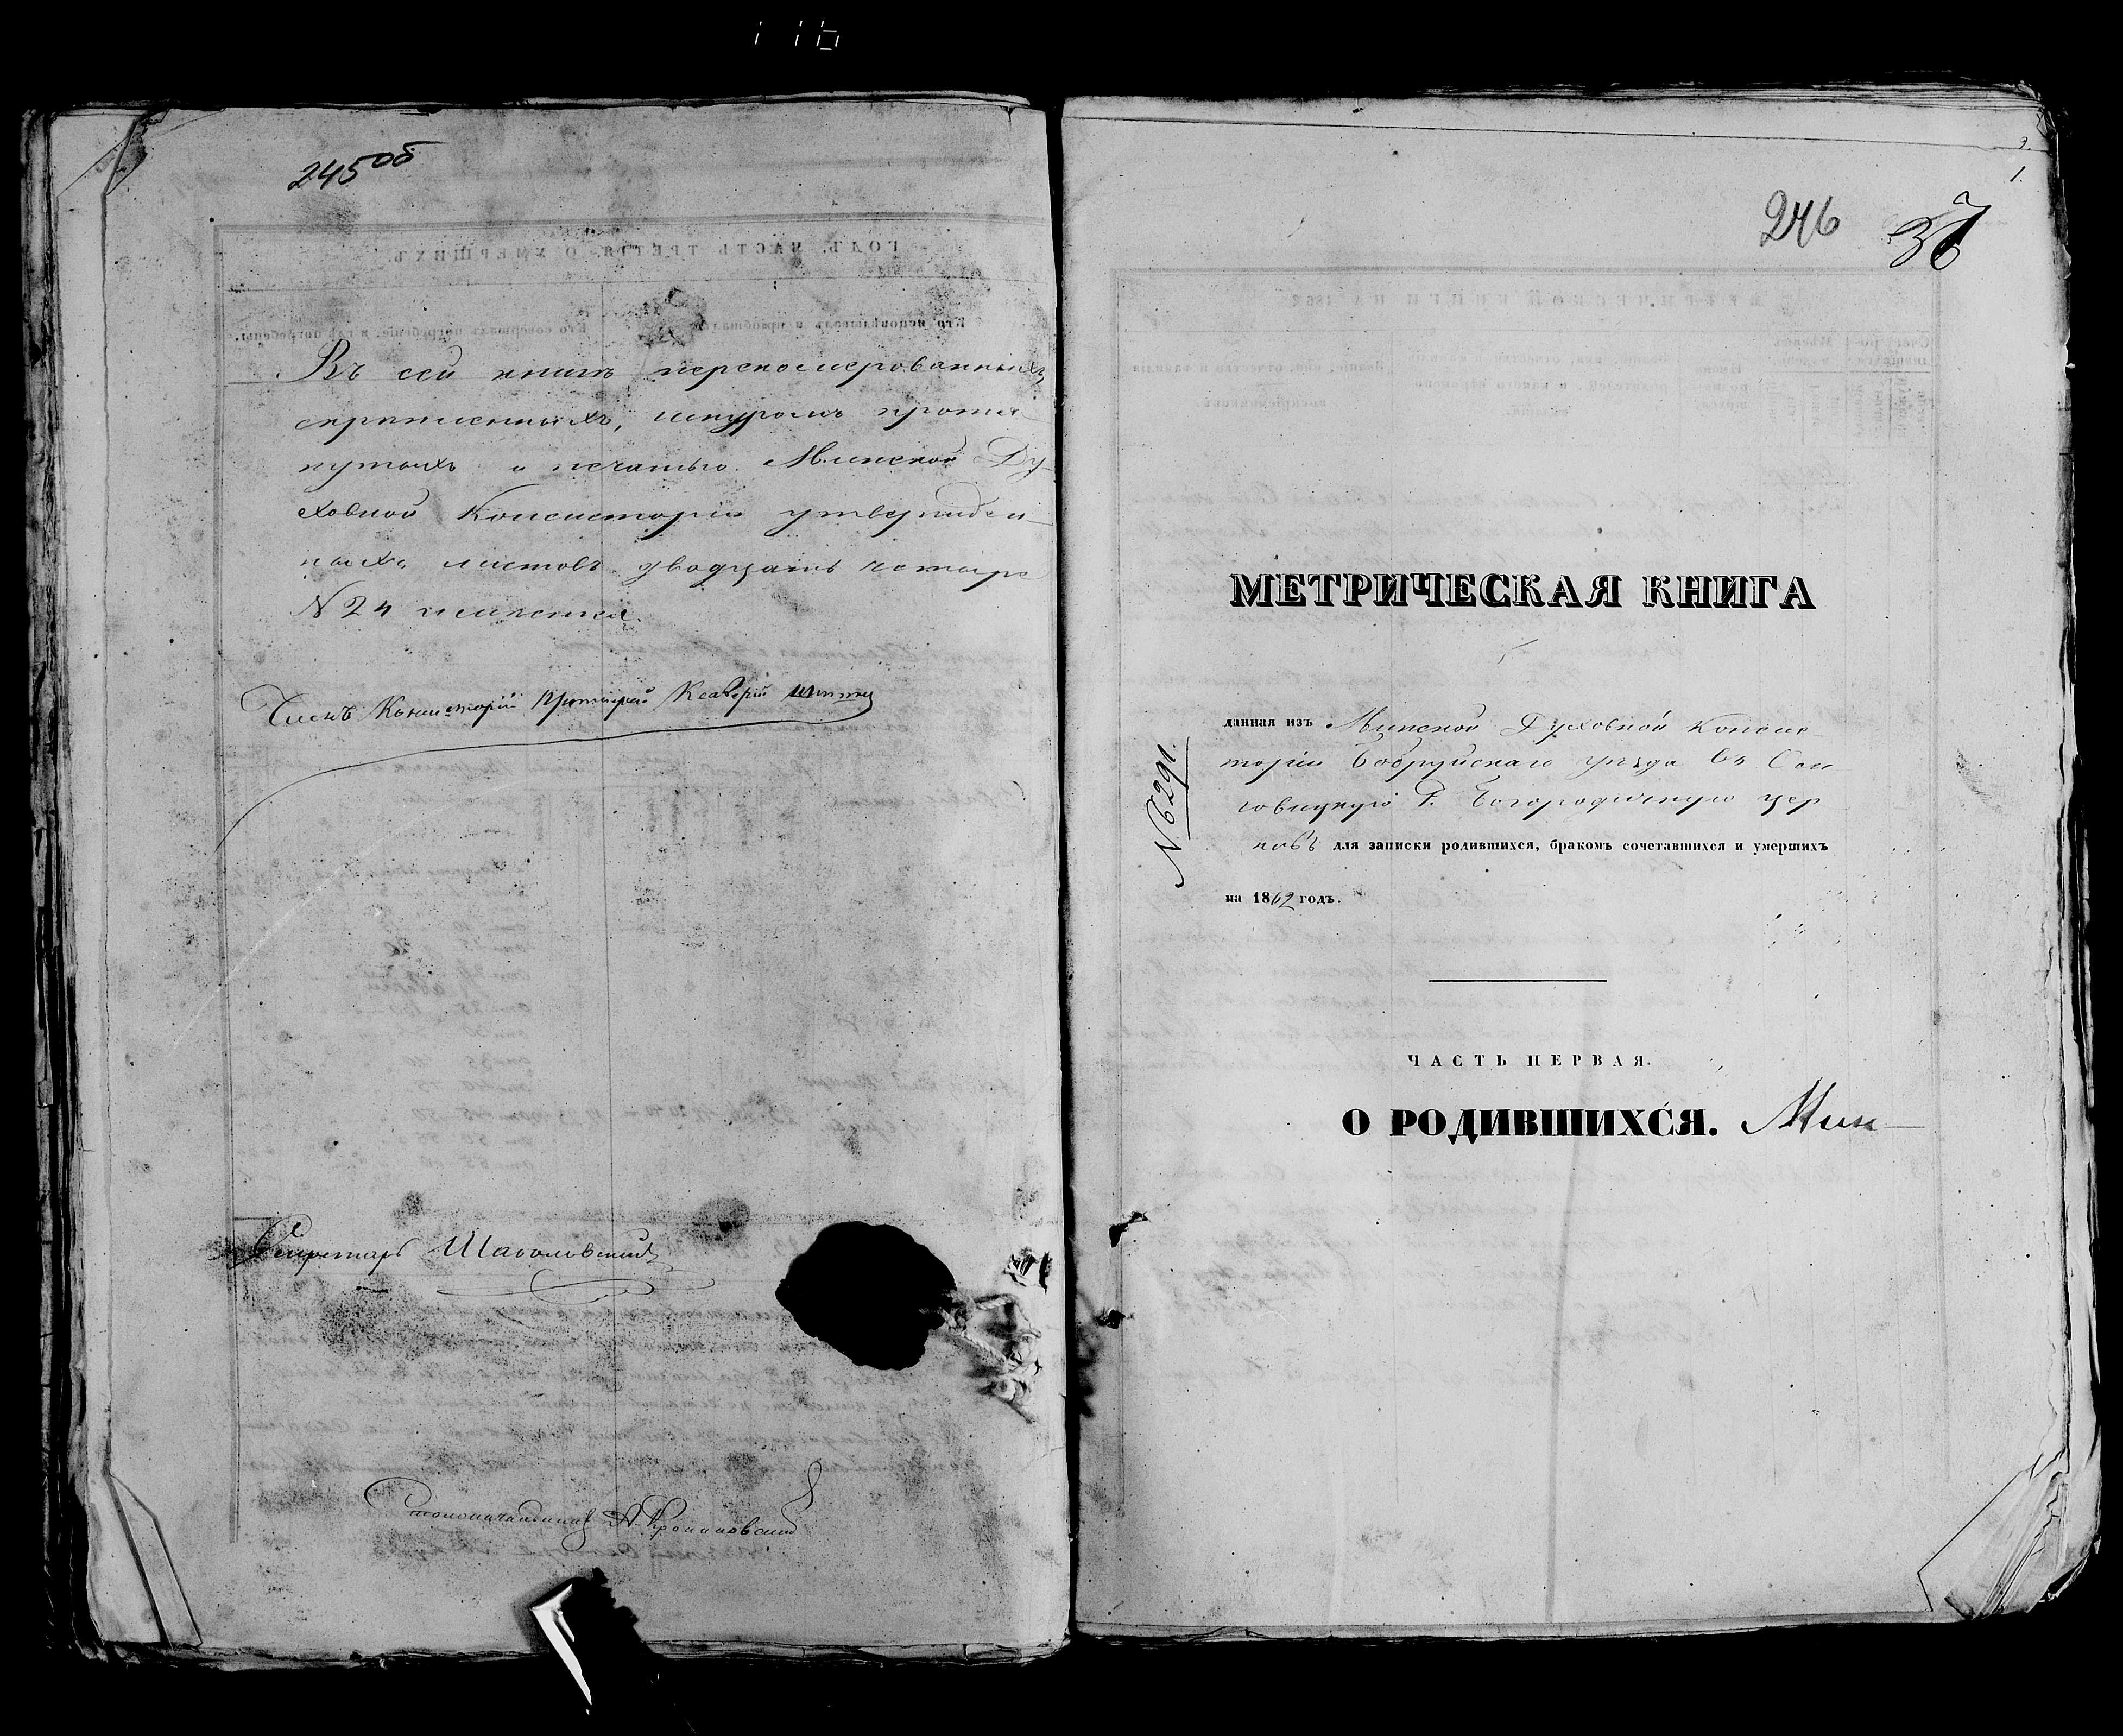 116
245об
Въ сей книгѣ перекомерованныхъ,
скрѣпленныхъ, шнуромъ протя-
нутыхъ и печатью Минской Ду-
ховной Консисторіи утвержден-
ныхъ листовъ двадцать четыре
N 24 имѣется.
Членъ Консисторіи Протоіерей Ксаверій
Секретарь
Столоначальникъ
1.
246
37
МЕТРИЧЕСКАЯ КНИГА
данная изъ Минской Духовной Консис-
торіи Бобруйскаго уѣзда въ
Р. Богородичную цер
ковь для записки родившихся, бракомъ сочетавшихся и умершихъ
на 1862 годъ.
N 6291.
ЧАСТЬ ПЕРВАЯ.
О РОДИВШИХСЯ. Мин-